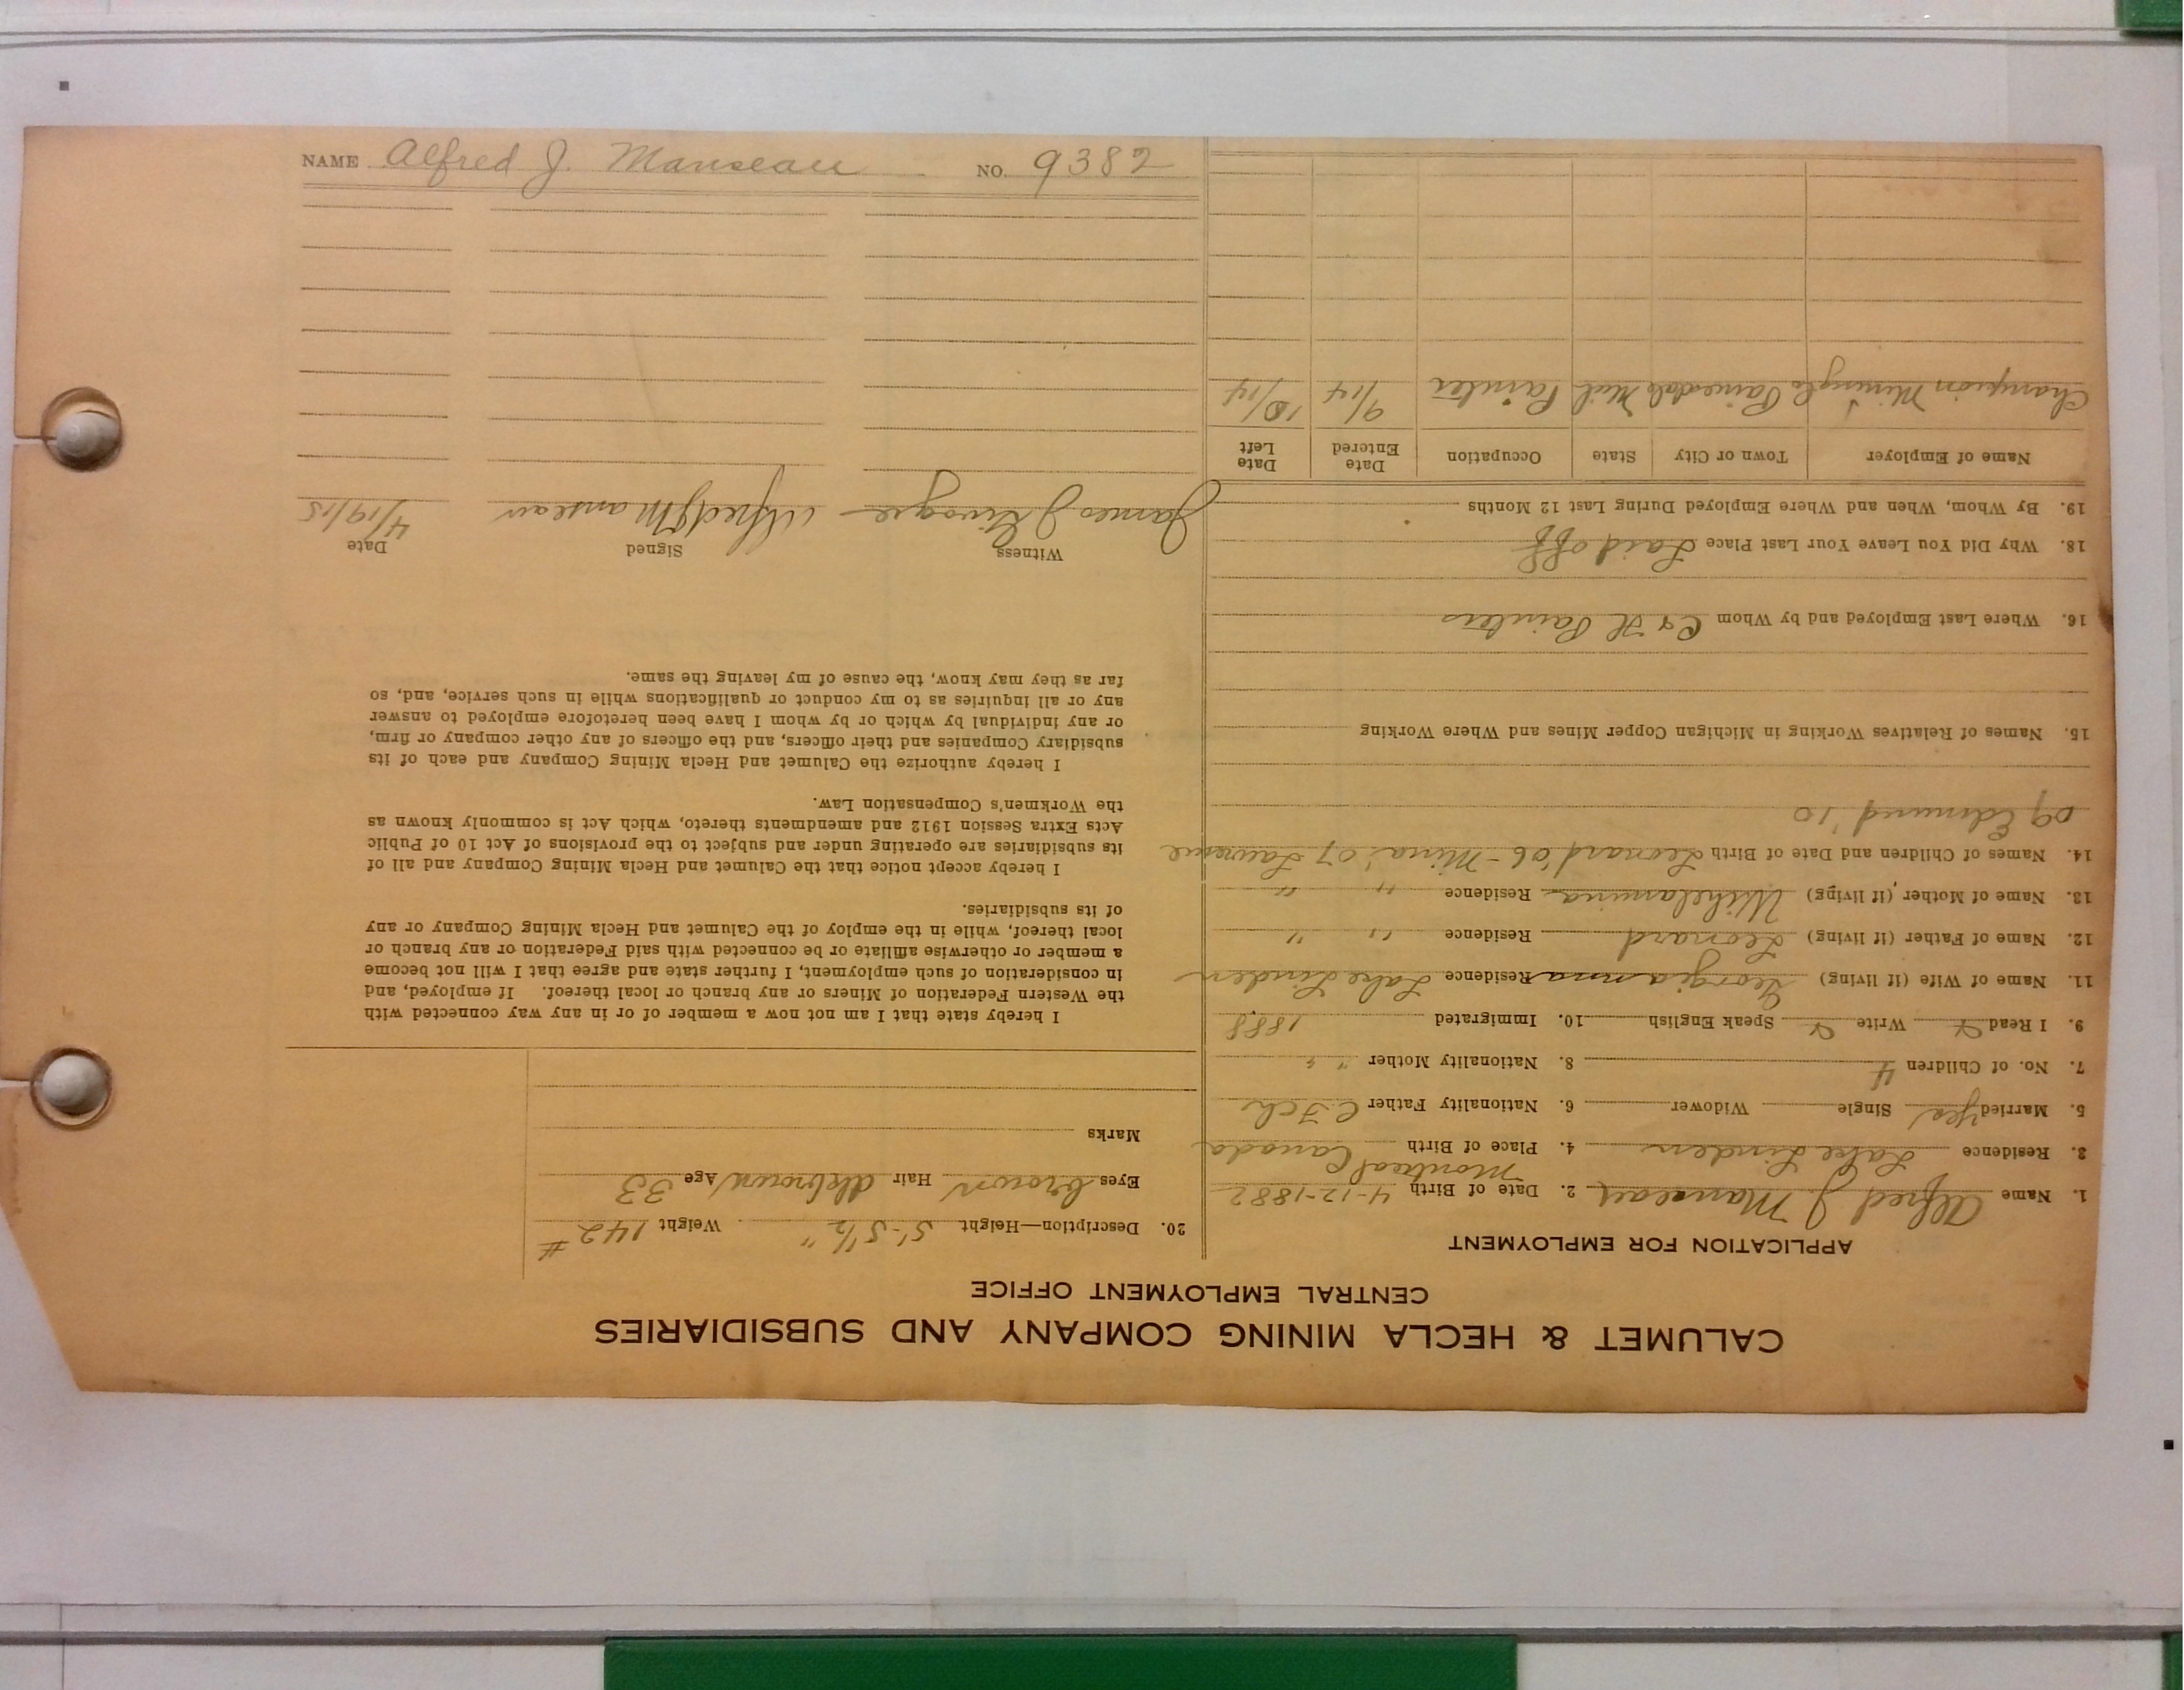 NAME Alfred J. Manseau NO. 9382
CALUMET & HECLA MINING COMPANY AND SUBSIDIARIES
CENTRAL EMPLOYMENT OFFICE
APPLICATION FOR EMPLOYMENT
1. Name Alfred J Manseau 2. Date of Birth 4-17-1882
3. Residence Lake Linden 4. Place of Birth Montreal Canada
5. Married Yes Single Widower 6. Nationality Father C. Fch
7. No. of Children 4 8. Nationality Mother " "
9. I Read Write Speak English 10. Immigrated 1888
11. Name of Wife (if living) Georgianna Residence Lake Linden
12. Name of Father (if living) Leonard Residence " "
13. Name of Mother (if living) Wilhelamina Residence " "
14. Names of Children and Date of Birth Leonard '06 - Mina '07 Lawrence
09 Edmund '10
15. Names of Relatives Working in Michigan Copper Mines and Where Working
16. Where Last Employed and by Whom C & H Painters
18. Why Did You Leave Your Last Place Laid off
19. By Whom, When and Where Employed During Last 12 Months
Name of Employer Town or City State Occupation Date Entered Date Left
Champion Mining Co Painesdale Mich Painter 9/14 10/14
20. Description—Height 5'-5 1/2" Weight 142#
Eyes brown Hair dkbrown Age 33
Marks
I hereby state that I am not now a member of or in any way connected with
the Western Federation of Miners or any branch or local thereof. If employed, and
in consideration of such employment, I further state and agree that I will not become
a member or otherwise affiliate or be connected with said Federation or any branch or
local thereof, while in the employ of the Calumet and Hecla Mining Company or any
of its subsidiaries.
I hereby accept notice that the Calumet and Hecla Mining Company and all of
its subsidiaries are operating under and subject to the provisions of Act 10 of Public
Acts Extra Session 1912 and amendments thereto, which Act is commonly known as
the Workmen's Compensation Law.
I hereby authorize the Calumet and Hecla Mining Company and each of its
subsidiary Companies and their officers, and the officers of any other company or firm,
or any individual by which or by whom I have been heretofore employed to answer
any or all inquiries as to my conduct or qualifications while in such service, and, so
far as they may know, the cause of my leaving the same.
Witness Signed Date
James J Alfred J Manseau 4/19/15